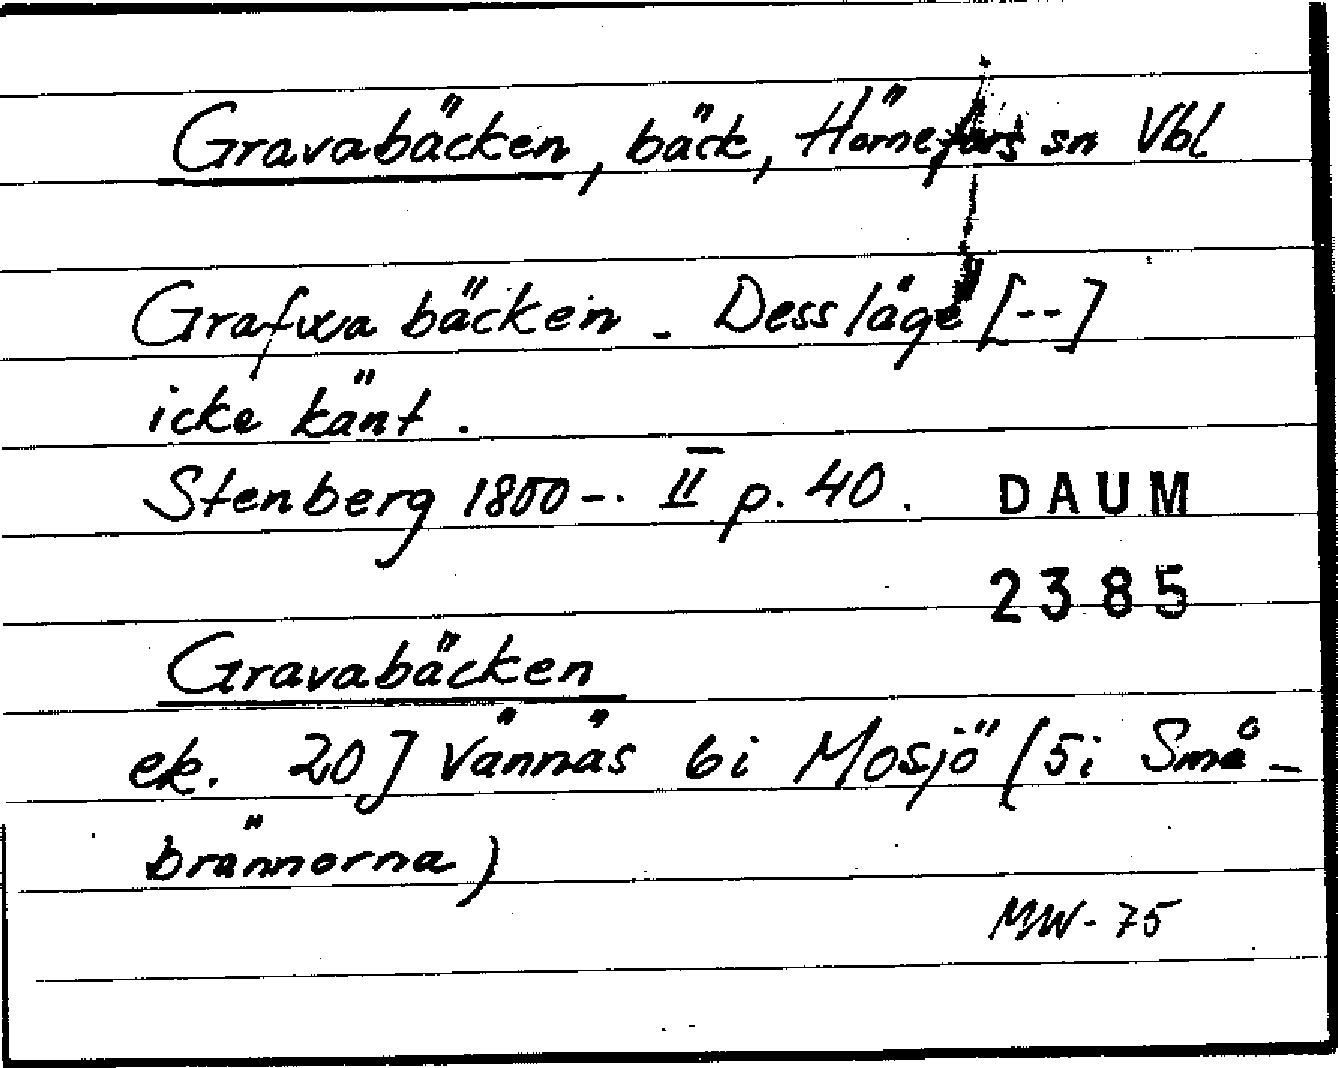 Gravabäcken, bäck, Hörnefors sn Vbl
Grafwa bäcken - Dess läge [--]
icke känt.
Stenberg 1800-. II p. 40. DAUM
2385
Gravabäcken
ek. 20J Vännäs 6i Mosjö (5i Små-
brännorna)
MW-75